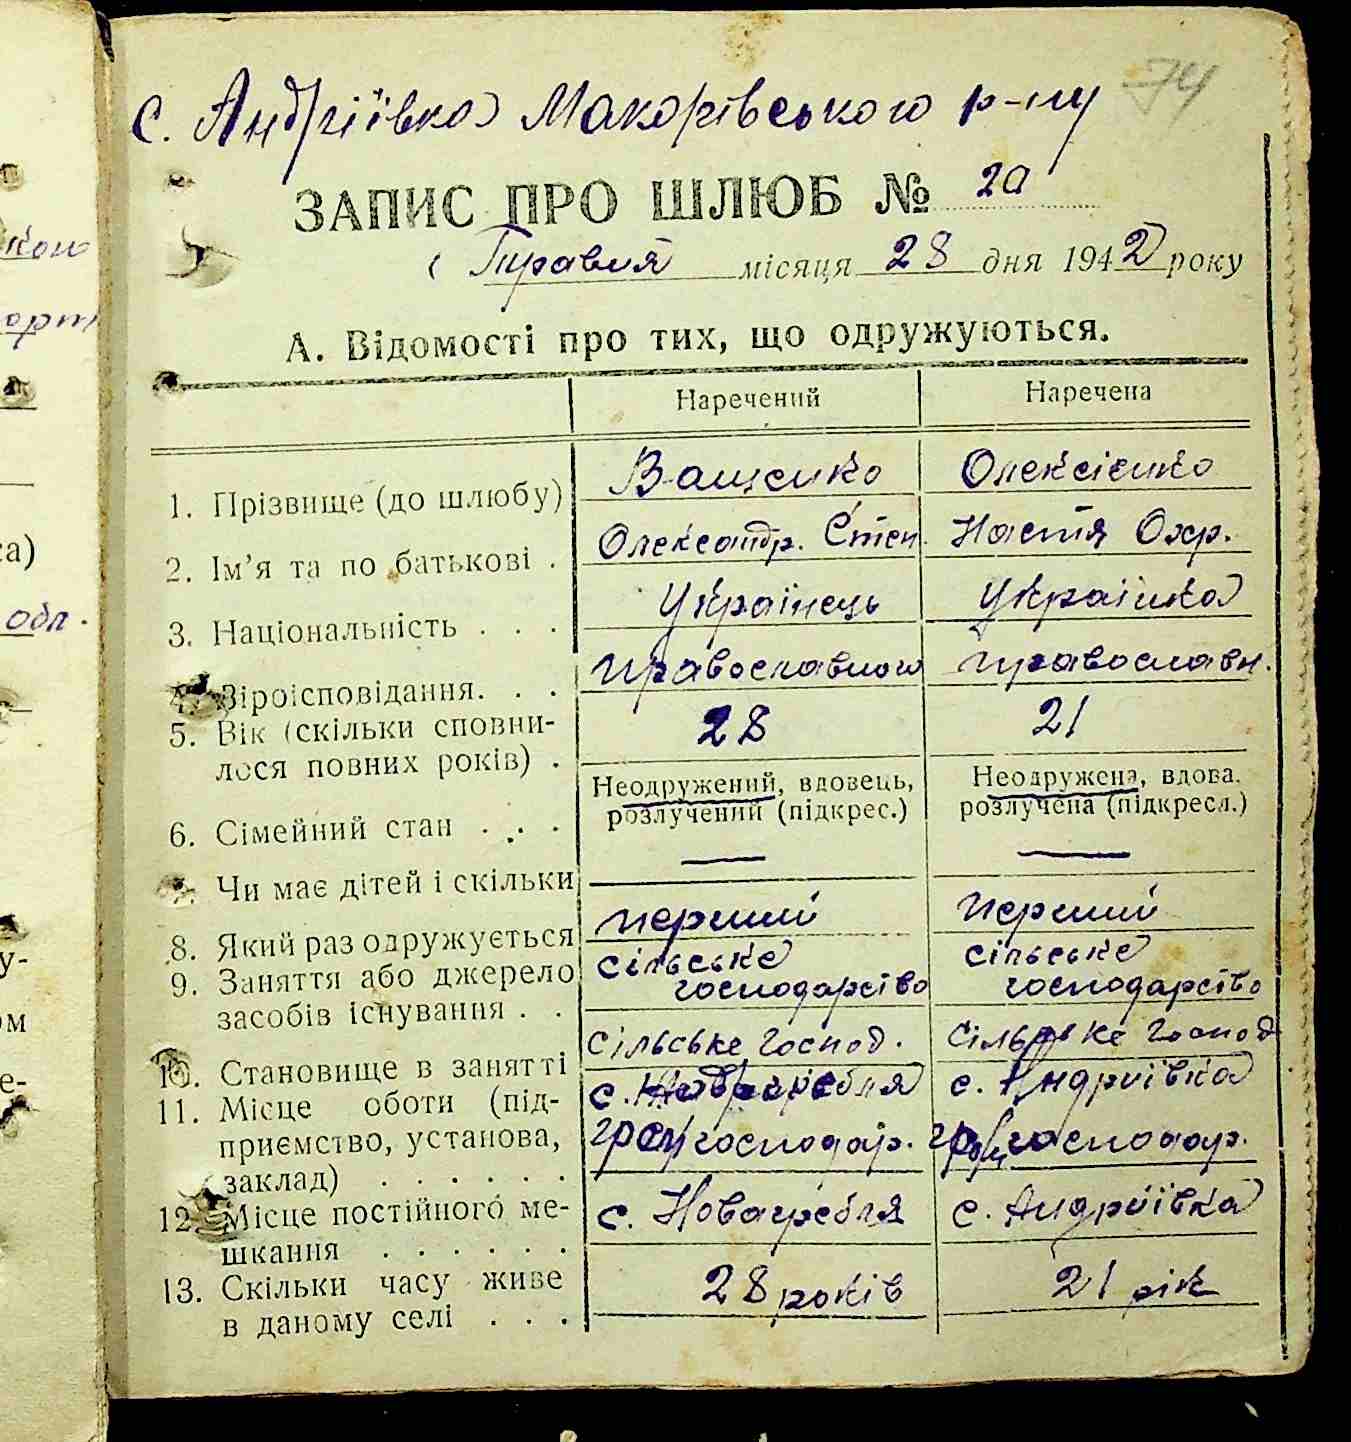 74
с. Андріївка Макарівського р-ну
ЗАПИС ПРО ШЛЮБ № 2а
Травня місяця 28 дня 1942 року
А. Відомості про тих, що одружуються.
Наречений Наречена
1. Прізвище (до шлюбу) Ващенко Олексієнко
2. Ім'я та по батькові . Олександр. Степ. Настя Охр.
3. Національність . . . Українець Українка
4. Віроісповідання. . . православного православн.
5. Вік (скільки сповни-
лося повних років) . 28 21
Неодружений, вдовець, Неодружена, вдова,
6. Сімейний стан . . . розлучений (підкрес.) розлучена (підкресл.)
7. Чи має дітей і скільки — —
8. Який раз одружується перший перший
9. Заняття або джерело сільське сільське
засобів існування . . господарство господарство
10. Становище в занятті сільське господ. сільське господ
11. Місце оботи (під- с. Новагребля с. Андріївка
приємство, установа, гром господар. гром господар.
заклад) . . . . . .
12. Місце постійного ме- с. Новагребля с. Андріївка
шкання . . . . . .
13. Скільки часу живе 28 років 21 рік
в даному селі . . .
кою
орт
са)
обл.
у-
ом
е-